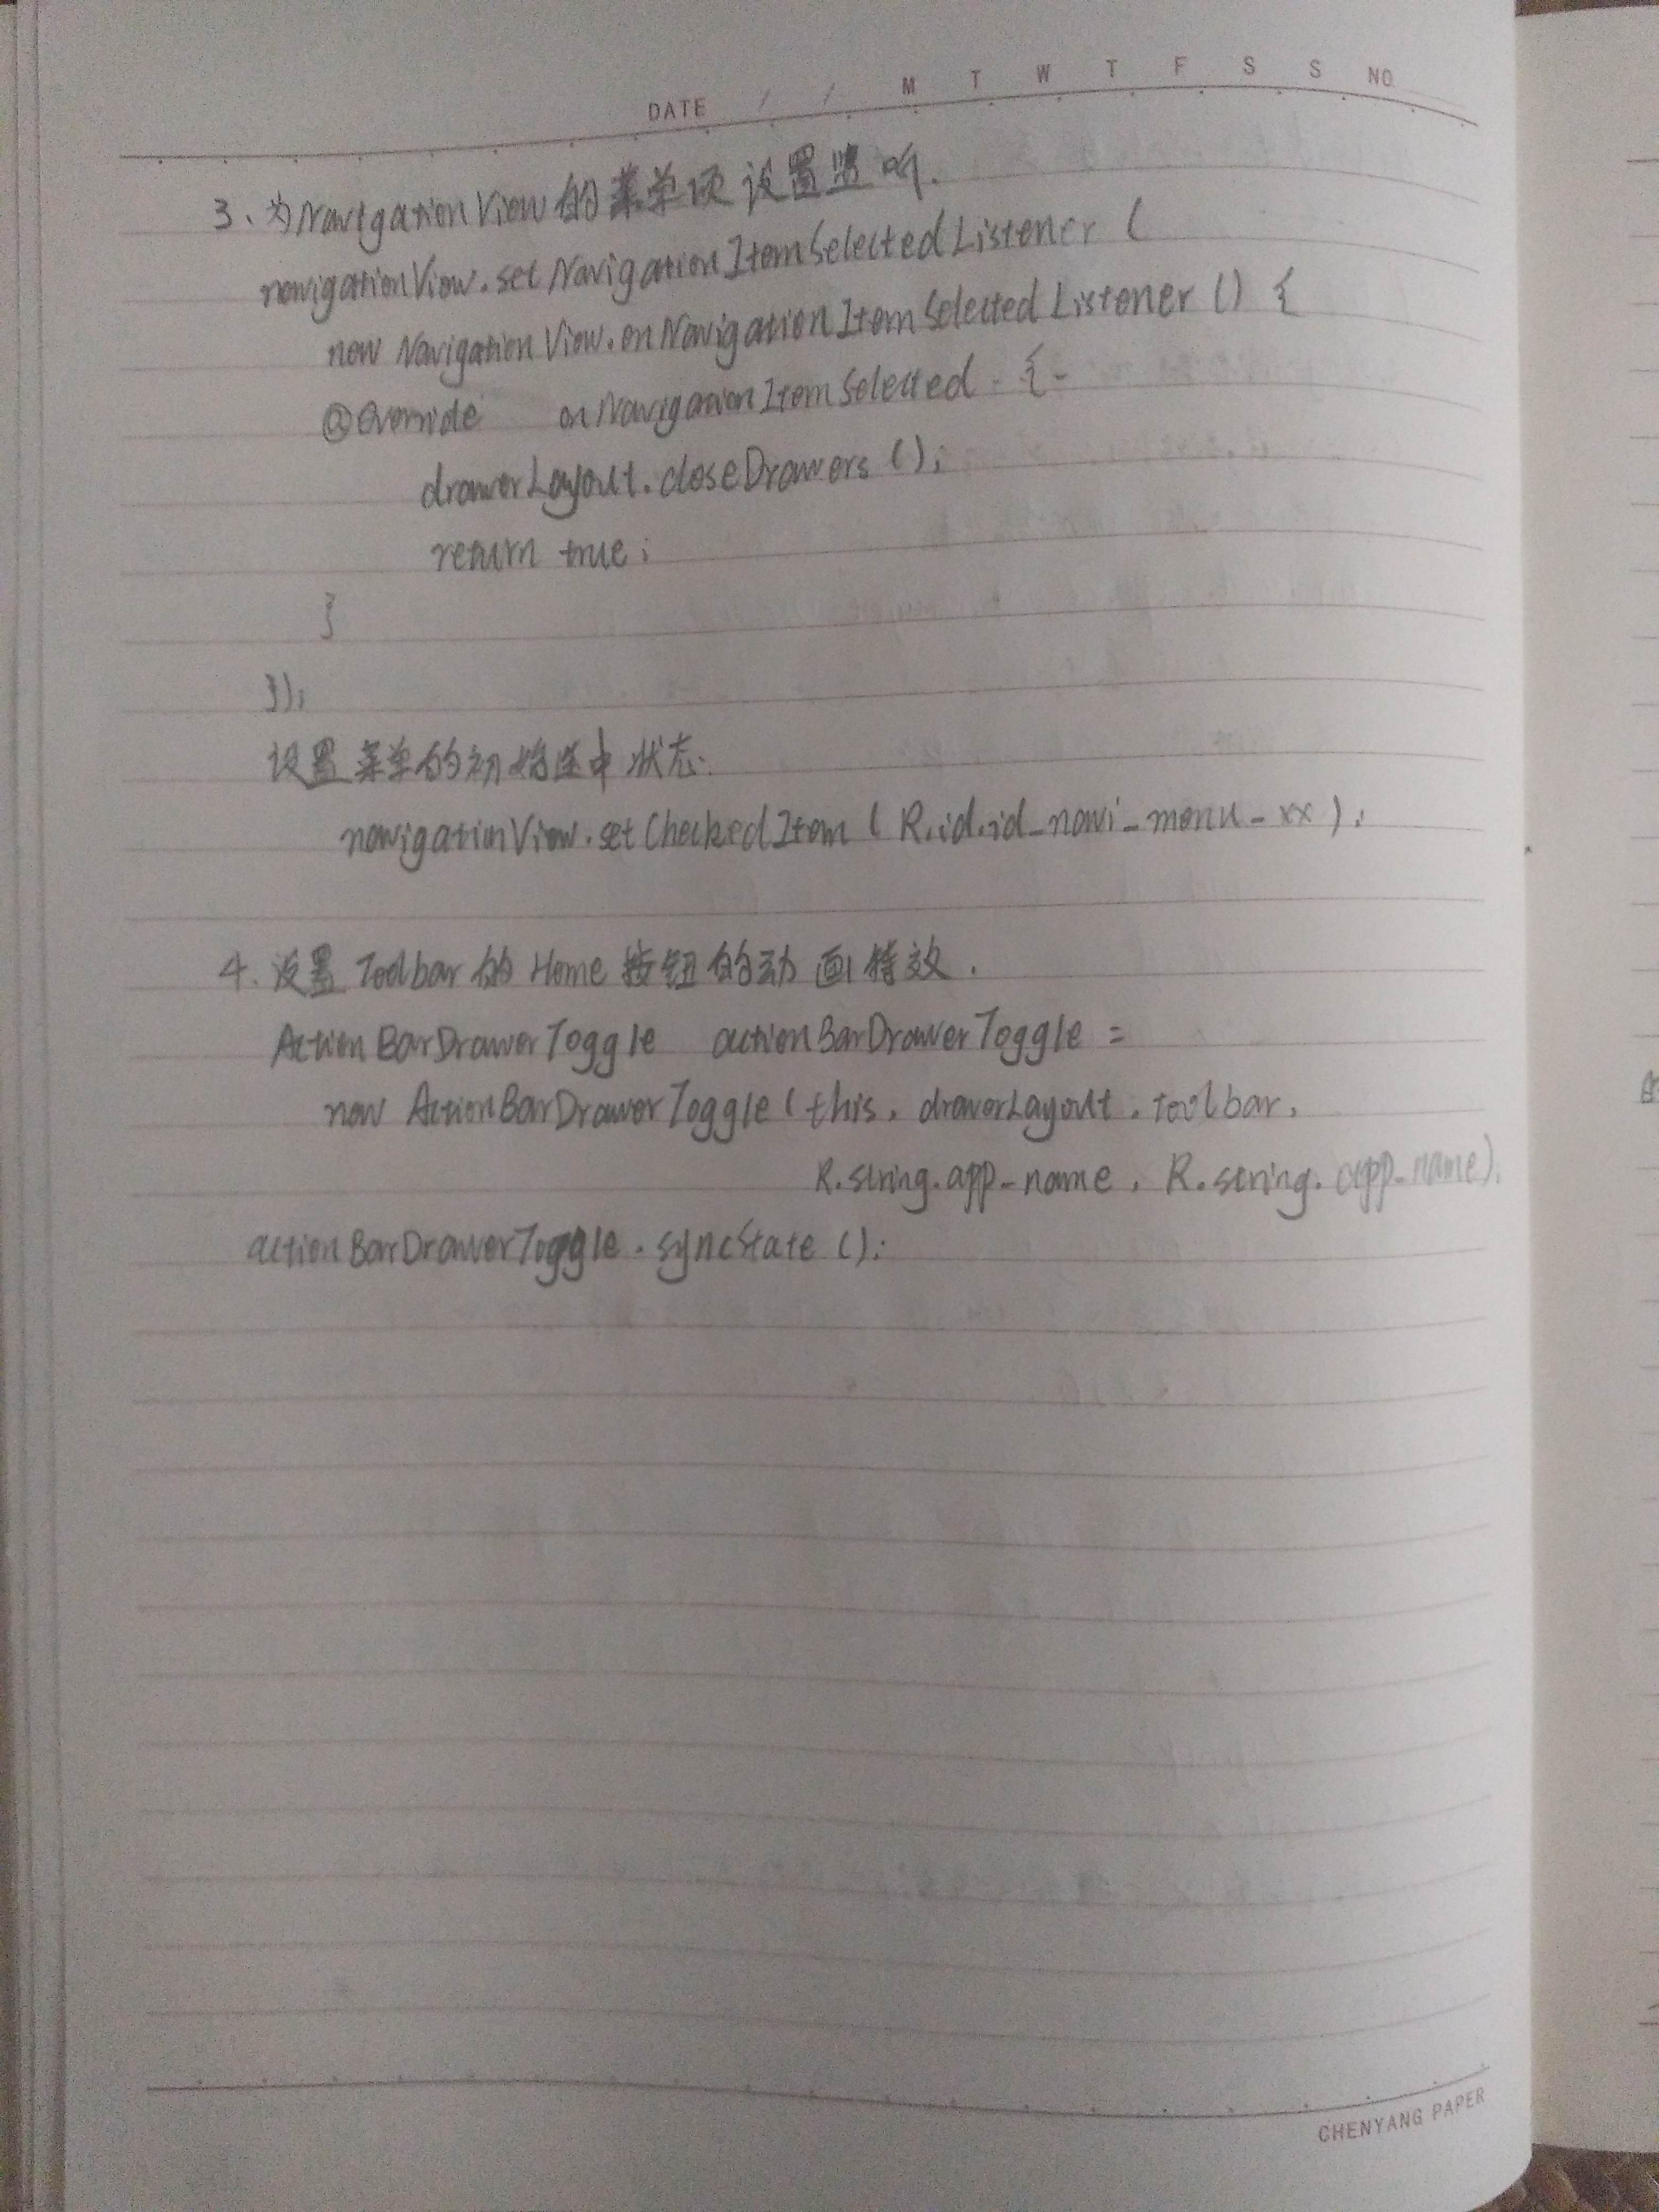 DATE / / M T W T F S S NO
3、为NavigationView的菜单项设置监听.
navigationView.setNavigationItemSelectedListener (
new NavigationView.onNavigationItemSelectedListener () {
@Override onNavigationItemSelected - {-
drawerLayout.closeDrawers ();
return true;
}
});
设置菜单的初始选中状态:
navigationView.setCheckedItem ( R.id.id_navi_menu_xx );
4. 设置Toolbar的Home按钮的动画特效.
ActionBarDrawerToggle actionBarDrawerToggle =
new ActionBarDrawerToggle (this, drawerLayout, toolbar,
R.string.app_name, R.string.app_name);
actionBarDrawerToggle.syncState ();
CHENYANG PAPER